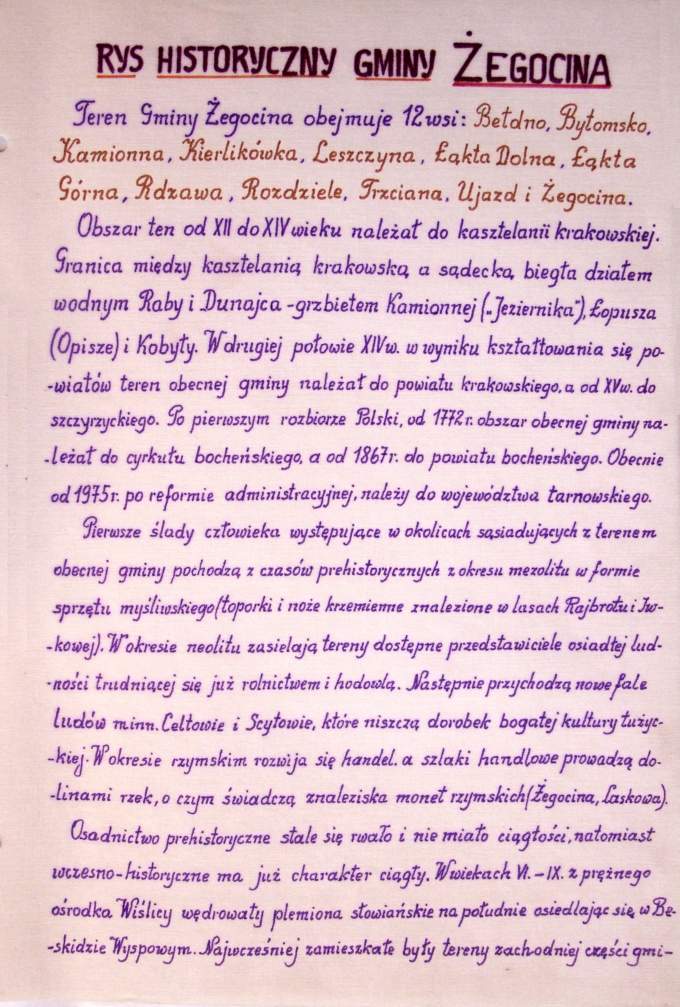 RYS HISTORYCZNY GMINY ŻEGOCINA
Teren Gminy Żegocina obejmuje 12 wsi: Bełdno, Bytomsko,
Kamionna, Kierlikówka, Leszczyna, Łąkta Dolna, Łąkta
Górna, Rdzawa, Rozdziele, Trzciana, Ujazd i Żegocina.
Obszar ten od XII do XIV wieku należał do kasztelanii krakowskiej.
Granica między kasztelanią krakowską a sądecką biegła działem
wodnym Raby i Dunajca - grzbietem Kamionnej ("Jeziernika"), Łopusza
(Opisze) i Kobyły. W drugiej połowie XIV w. w wyniku kształtowania się po-
-wiatów teren obecnej gminy należał do powiatu krakowskiego, a od XV w. do
szczyrzyckiego. Po pierwszym rozbiorze Polski, od 1772 r. obszar obecnej gminy na-
-leżał do cyrkułu bocheńskiego, a od 1867 r. do powiatu bocheńskiego. Obecnie
od 1975 r. po reformie administracyjnej, należy do województwa tarnowskiego.
Pierwsze ślady człowieka występujące w okolicach sąsiadujących z terenem
obecnej gminy pochodzą z czasów prehistorycznych z okresu mezolitu w formie
sprzętu myśliwskiego (toporki i noże krzemienne znalezione w lasach Rajbrotu i Iw-
-kowej). W okresie neolitu zasielają tereny dostępne przedstawiciele osiadłej lud-
-ności trudniącej się już rolnictwem i hodowlą. Następnie przychodzą nowe fale
ludów minn. Celtowie i Scytowie, które niszczą dorobek bogatej kultury łużyc-
-kiej. W okresie rzymskim rozwija się handel, a szlaki handlowe prowadzą do-
-linami rzek, o czym świadczą znaleziska monet rzymskich (Żegocina, Laskowa).
Osadnictwo prehistoryczne stale się rwało i nie miało ciągłości, natomiast
wczesno-historyczne ma już charakter ciągły. W wiekach VI. - IX. z prężnego
ośrodka Wiślicy wędrowały plemiona słowiańskie na południe osiedlając się w Be-
-skidzie Wyspowym. Najwcześniej zamieszkałe były tereny zachodniej części gmi-